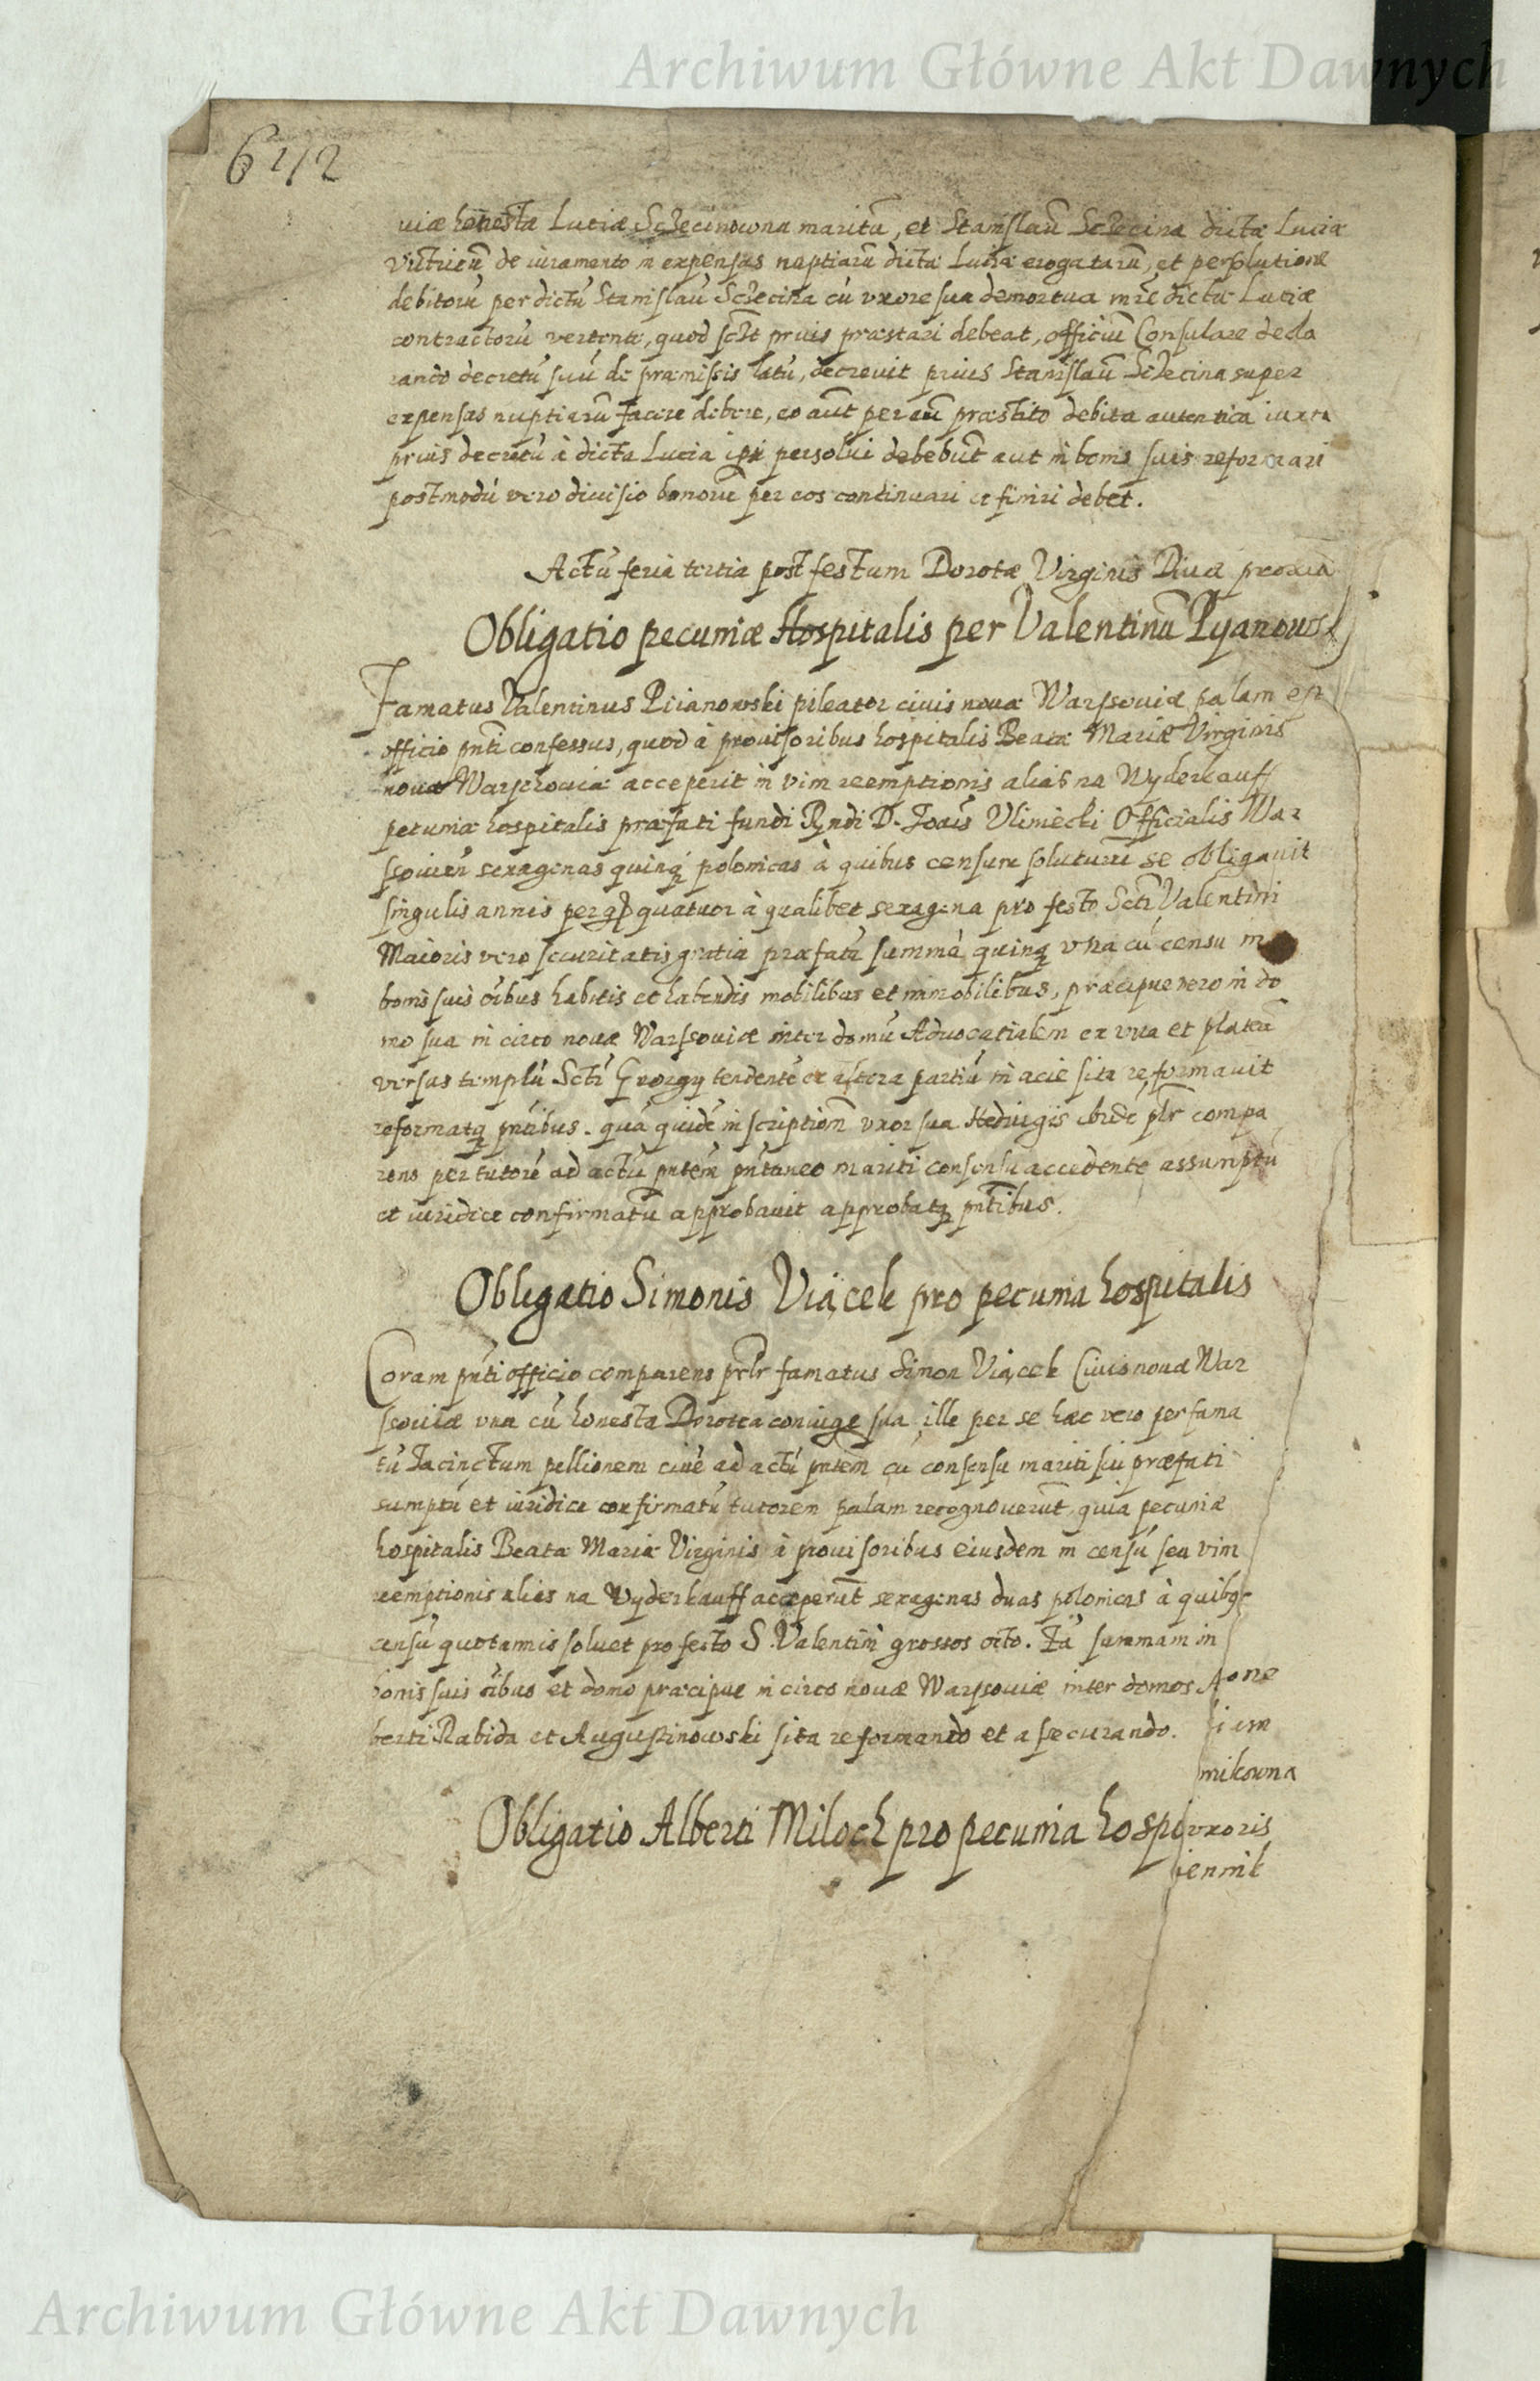 Archiwum Główne Akt Dawnych
6212
uiæ honestæ Luciæ Sczecinowna maritũ, et Stanislaũ Sczecina dictæ Luciæ
vitricũ de iuramento in expensas nuptiarũ dictæ Luciæ erogatarũ, et persolutione
debitorũ per dictũ Stanislaũ Sczecina cũ uxore sua demortua mr̃e dictæ Luciæ
contractorũ vertente, quod sclt prius præstari debeat, officiũ Consulare decla
rando decretũ suũ de præmissis latũ, decrevit prius Stanislaũ Sczecina super
expensas nuptiarũ facere debere, eo aũt per eũ præstito debita autentica iuxta
prius decretũ à dicta Lucia ipsi persolui debebũt aut in bonis suis reformari
postmodũ vero diuisio bonorũ per eos continuari et finiri debet.
Actũ feria tertia post festum Dorotæ Virginis Diuæ proxia
Obligatio pecuniæ Hospitalis per Valentinũ Pyanowsk
Famatus Valentinus Piianowski pileator ciuis nouæ Warssouiæ palam
officio pñti confessus, quod à prouisoribus hospitalis Beatæ Mariæ Virginis
nouæ Warschouiæ acceperit in vim reemptionis alias na Wyderkauff
petuniæ hospitalis præfati fundi Rṽndi D. Joaïs Vliniecki Officialis War
ssouieñ sexagenas quinq; polonicas à quibus censum soluturũ se obligauit
singulis annis per gr quatuor à qualibet sexagena pro festo Scti Valentini
Maioris vero securitatis gratia præfatã summã quinq; vna cũ censu in
bonis suis oïbus habitis et habendis mobilibus et immobilibus, præcipue vero in do
mo sua in circo nouæ Warssouiæ inter domũ Aduocatialem ex vna et plateã
versus templũ Scti Georgij tendentẽ ex altera partiũ in acie sita reformauit
reformatq; pñtibus. quã quidẽ inscriptionẽ vxor sua Hedwigis ibidẽ plr compa
rens per tutorẽ ad actũ pñtem pñtaneo mariti consensu accedente assumptũ
et iuridice confirmatũ approbauit approbatq; pñtibus.
Obligatio Simonis Viącek pro pecunia hospitalis
Coram pñti officio comparens prlr famatus Simon Viącek Ciuis nouæ War
ssouiæ vna cũ honesta Dorotea coniuge sua ille per se hæc vero per fama
tũ Jacinctum pellionem ciuẽ ad actũ pñtem cũ consensu mariti sui præfati
sumptũ et iuridice confirmatũ tutorem palam recognouerũt, quia pecuniæ
hospitalis Beatæ Mariæ Virginis à prouisoribus eiusdem in censũ seu vim
reemptionis alias na Vyderkauff acceperũt sexagenas duas polonicas à quibq;
censũ quotannis soluet pro festo S. Valentini grossos octo. Eã summam in
bonis suis oïbus et domo præcipue in circo nouæ Warssouiæ inter domos
berti Rabida et Augustinowski sita reformando et assecurando.
one
mikowna
Obligatio Alberti Miloch pro pecunia hosp
vxoris
Archiwum Główne Akt Dawnych